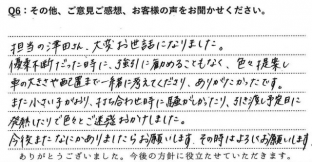 Q6：その他、ご意見ご感想、お客様の声をお聞かせください。
担当の澤田さん、大変お世話になりました。
優柔不断だった時に、強引に勧めることもなく、色々提案し
車の大きさや配置まで一緒に考えてくださり、ありがたかったです。
また小さい子がおり、打ち合わせ時に騒がしかたり、引き渡し予定日に
発熱したりで色々とご迷惑おかけしました。
今後またなにかありましたらお願いします。その時はよろしくお願いします。
ありがとうございました。今後の方針に役立たせていただきます。